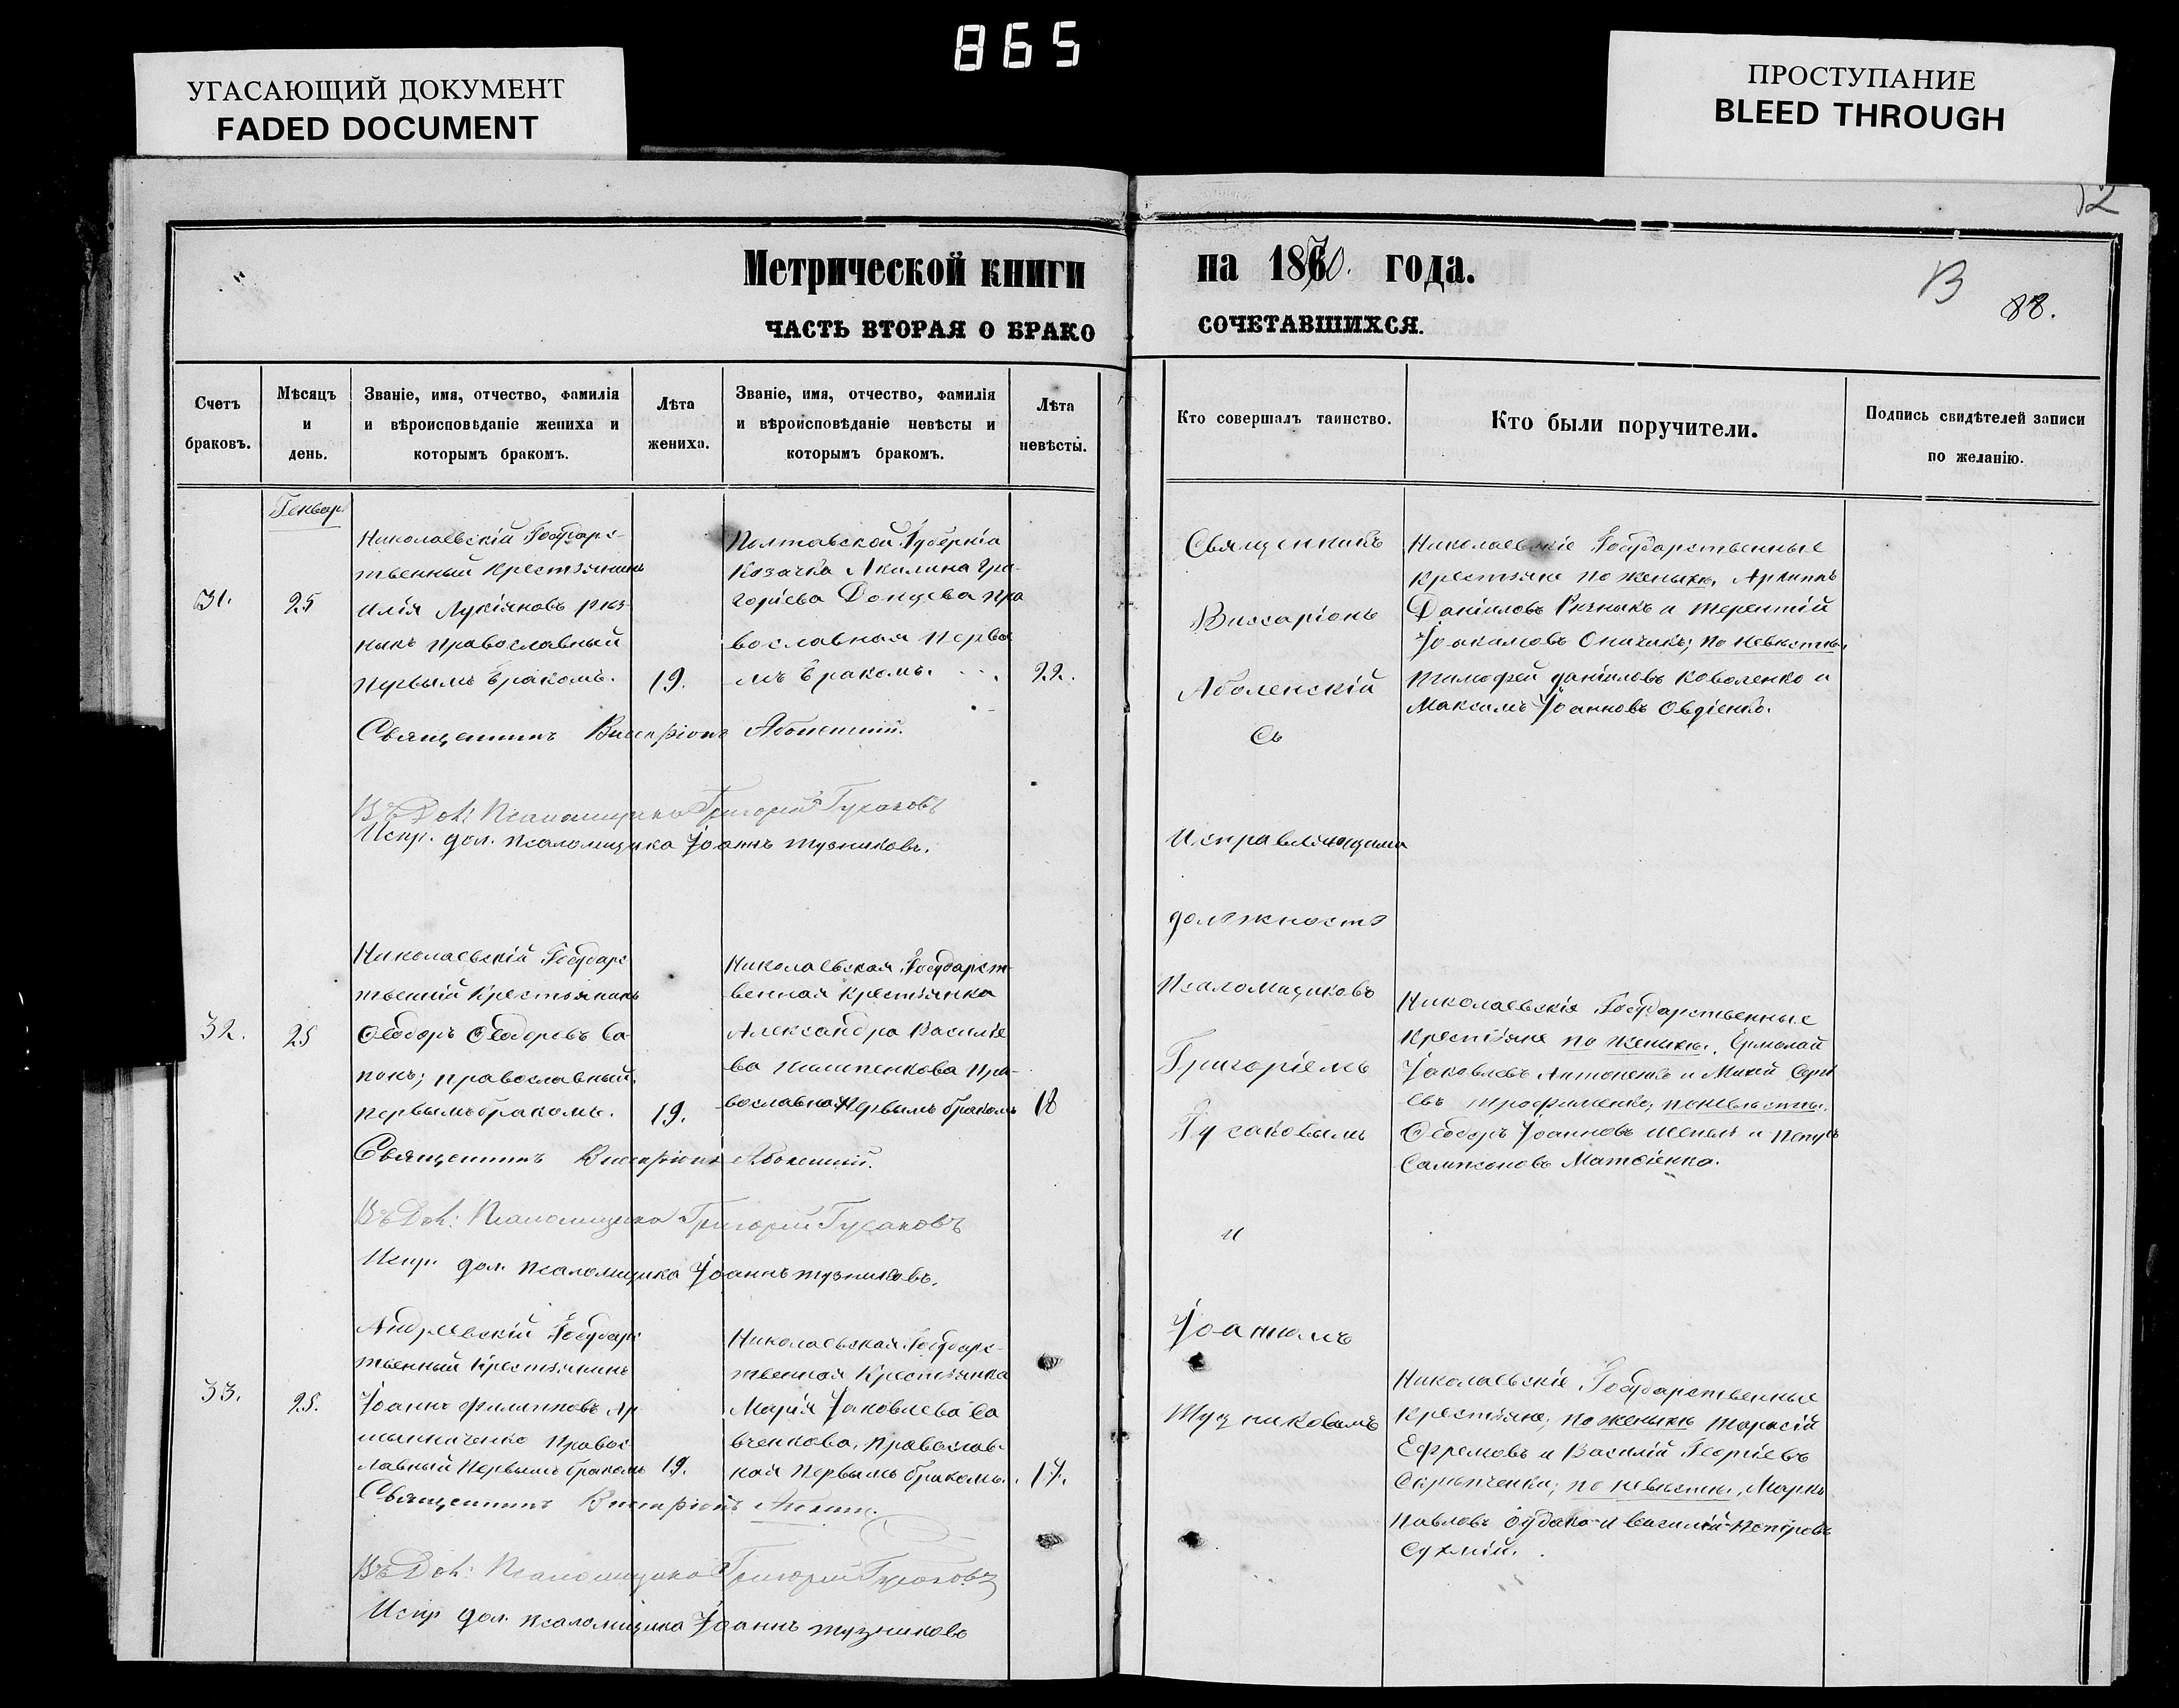 865
УГАСАЮЩИЙ ДОКУМЕНТ
FADED DOCUMENT
ПРОСТУПАНИЕ
BLEED THROUGH
12
Метрической книги на 1870. года.
В 88.
ЧАСТЬ ВТОРАЯ О БРАКО СОЧЕТАВШИХСЯ.
Счетъ браковъ.
Мѣсяцъ и день.
Званіе, имя, отчество, фамилія
и вѣроисповѣданіе жениха и
которымъ бракомъ.
Лѣта жениха.
Званіе, имя, отчество, фамилія
и вѣроисповѣданіе невѣсты и
которымъ бракомъ.
Лѣта невѣсты.
Кто совершалъ таинство.
Кто были поручители.
Подпись свидѣтелей записи
по желанію.
Генвар
31.
25
Николаевскій Государс-
твенный крестьянинъ
Илія Лукіяновъ Рѣз-
никъ православный
первымъ бракомъ.
19.
Полтавской Губерніи
Козачка Акилина Гри-
горіева Донцева пра
вославная первы
мъ бракомъ.
22.
Священникъ Виссаріонъ Аболенскій.
Въ Дол: Псаломщика Григорій Гусаковъ
Испр. дол. псаломщика Іоаннъ Тузниковъ.
32.
25
Николаевскій Государс
твенній крестьянинъ
Ѳеодоръ Ѳеодоровъ Са
понъ; православный.
первымъ бракомъ.
19.
Николаевская Государст-
венная крестьянка
Александра Василіе
ва
православная первымъ бракомъ
18
Священникъ Виссаріонъ Аболенскій.
Въ Дол: Псаломщика Григорій Гусаковъ
Испр. дол. псаломщика Іоаннъ Тузниковъ.
33.
25.
Андреевскій Государс
твенный крестьянинъ
Іоаннъ Филиповъ
правос
лавный первымъ бракомъ
19.
Николаевская Государс-
твенная крестьянка
Марія Іаковлева Са
вченкова, православ-
ная первымъ бракомъ.
17.
Священникъ Виссаріонъ
Въ Дол: Псаломщика Григорій Гусаковъ
Испр дол. псаломщика Іоаннъ Тузниковъ
Священникъ
Виссаріонъ
Аболенскій
Съ
Исправляющими
должность
Псаломщиковъ
Григоріемъ
Гусаковымъ
и
Іоанномъ
Тузниковымъ
Николаевскіе Государственные
крестьяне по женихѣ, Архипъ
Даніиловъ Рѣзникъ и Терентій
Іоакимовъ по невѣстѣ,
Тимофей Даніиловъ Коваленко и
Максимъ Іоанновъ Овдіенко.
Николаевскія Государственные
крестьяне по женихѣ, Ермолай
Іаковлевъ Антоненко и Михей Сергѣ
евъ Трофименко; по невѣстѣ.
Ѳеодоръ Іоанновъ и Петръ
Сампсоновъ Матвіенко.
Николаевскіе Государственные
крестьяне, по женихѣ Тарасій
Ефремовъ и Василій Георгіевъ
Скрыпченки; по невѣстѣ, Марко
Павловъ и Василій Петровъ
Сухмій.